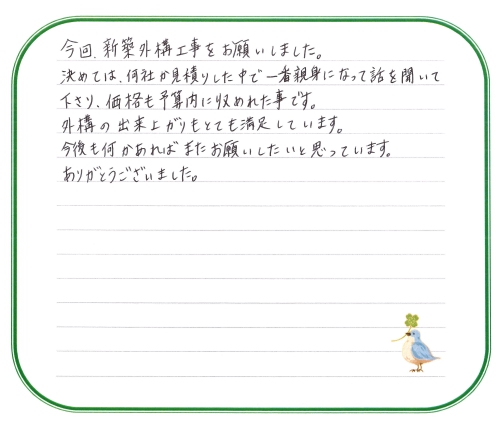 今回、新築外構工事をお願いしました。
決めては、何社か見積りした中で一番親身になって話を聞いて
下さり、価格も予算内に収めれた事です。
外構の出来上がりもとても満足しています。
今後も何かあればまたお願いしたいと思っています。
ありがとうございました。